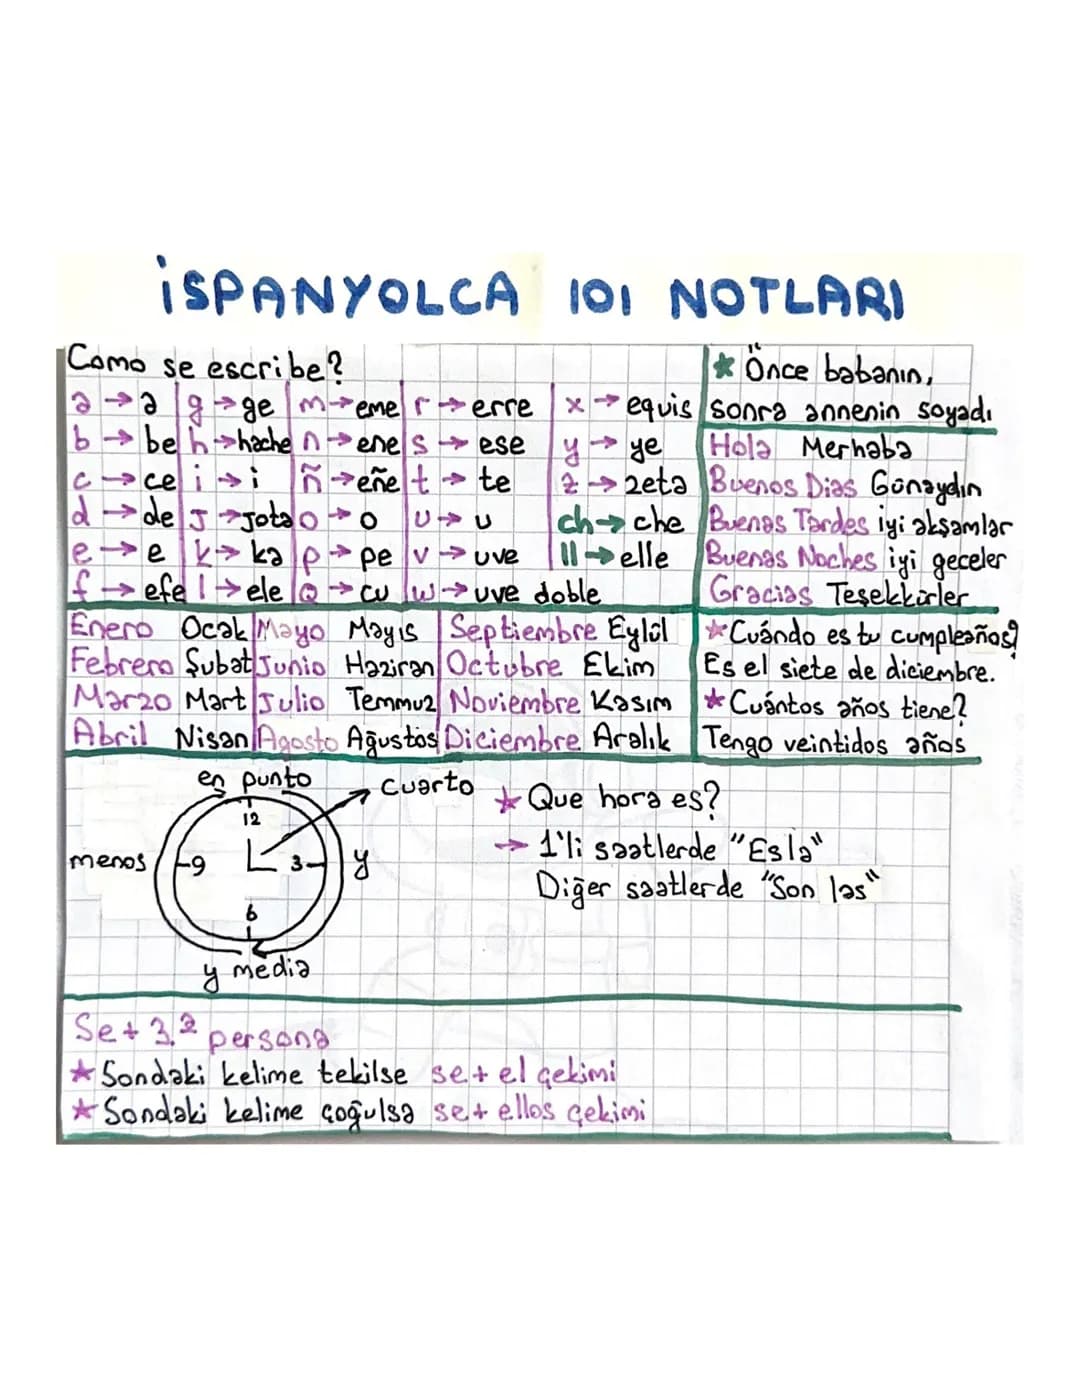 İSPANYOLCA 101 NOTLARI
Como se escribe?
a → a g → ge m → eme r → erre x → equis
b → be h → hache n → ene s → ese y → ye
c → ce i → i ñ → eñe t → te z → zeta
d → de J → jota o → o u → u ch → che
e → e k → ka p → pe v → uve ll → elle
f → efe l → ele Q → cu w → uve doble
★ Önce babanın,
sonra annenin soyadı
Hola Merhaba
Buenos Dias Günaydın
Buenas Tardes iyi akşamlar
Buenas Noches iyi geceler
Gracias Teşekkürler
Enero Ocak Mayo Mayıs Septiembre Eylül
Febrero Şubat Junio Haziran Octubre Ekim
Marzo Mart Julio Temmuz Noviembre Kasım
Abril Nisan Agosto Ağustos Diciembre Aralık
★ Cuándo es tu cumpleaños?
Es el siete de diciembre.
★ Cuántos años tiene?
Tengo veintidos años
en punto
cuarto
12
menos
9
3
y
6
y media
★ Que hora es?
→ 1'li saatlerde "Es la"
Diğer saatlerde "Son las"
Se + 3.ª persona
★ Sondaki kelime tekilse se + el çekimi
★ Sondaki kelime çoğulsa se + ellos çekimi